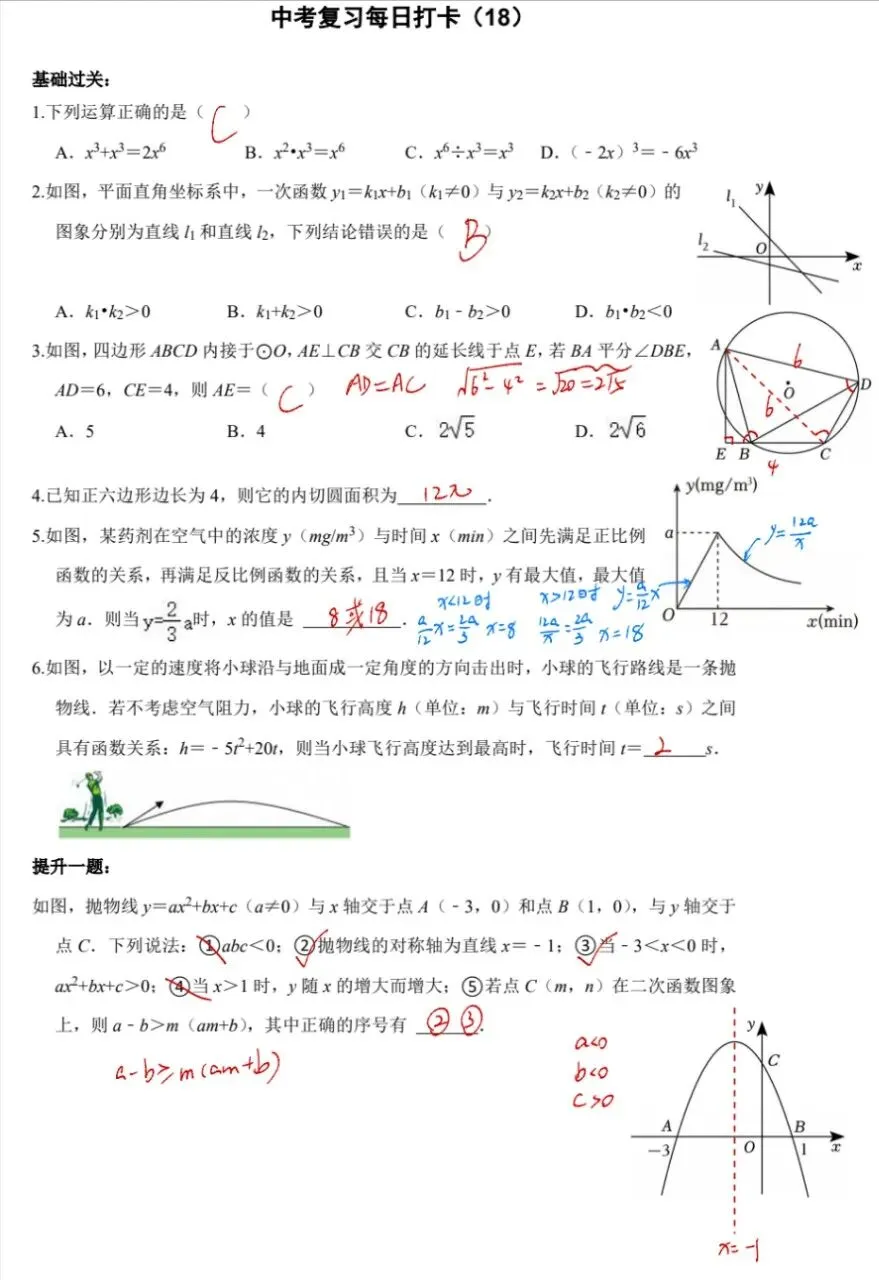 中考复习每日打卡（18）
基础过关：
1.下列运算正确的是（ C ）
A．x³+x³＝2x⁶ B．x²•x³＝x⁶ C．x⁶÷x³＝x³ D．（﹣2x）³＝﹣6x³
2.如图，平面直角坐标系中，一次函数 y₁＝k₁x+b₁（k₁≠0）与 y₂＝k₂x+b₂（k₂≠0）的
图象分别为直线 l₁ 和直线 l₂，下列结论错误的是（ B ）
l₁
l₂
y
O
x
A．k₁•k₂＞0 B．k₁+k₂＞0 C．b₁﹣b₂＞0 D．b₁•b₂＜0
3.如图，四边形 ABCD 内接于⊙O，AE⊥CB 交 CB 的延长线于点 E，若 BA 平分∠DBE，
AD＝6，CE＝4，则 AE＝（ C ） AD=AC √6²-4² = √20 = 2√5
A．5 B．4 C．2√5 D．2√6
A
6
O
D
6
E B C
4
4.已知正六边形边长为 4，则它的内切圆面积为 12π ．
5.如图，某药剂在空气中的浓度 y（mg/m³）与时间 x（min）之间先满足正比例
函数的关系，再满足反比例函数的关系，且当 x＝12 时，y 有最大值，最大值
为 a．则当y=2/3 a时，x 的值是 8或18 ．
x<12时 a/12 x=2a/3 x=8
x>12时 12a/x=2a/3 x=18
y=a/12 x
y(mg/m³)
a
y=12a/x
O 12 x(min)
6.如图，以一定的速度将小球沿与地面成一定角度的方向击出时，小球的飞行路线是一条抛
物线．若不考虑空气阻力，小球的飞行高度 h（单位：m）与飞行时间 t（单位：s）之间
具有函数关系：h＝﹣5t²+20t，则当小球飞行高度达到最高时，飞行时间 t＝ 2 s．
提升一题：
如图，抛物线 y＝ax²+bx+c（a≠0）与 x 轴交于点 A（﹣3，0）和点 B（1，0），与 y 轴交于
点 C．下列说法：①abc＜0；②抛物线的对称轴为直线 x＝﹣1；③当﹣3＜x＜0 时，
ax²+bx+c＞0；④当 x＞1 时，y 随 x 的增大而增大；⑤若点 C（m，n）在二次函数图象
上，则 a﹣b＞m（am+b），其中正确的序号有 ② ③ ．
a-b≥m(am+b)
a<0
b<0
c>0
y
C
A B
-3 O 1 x
x=-1